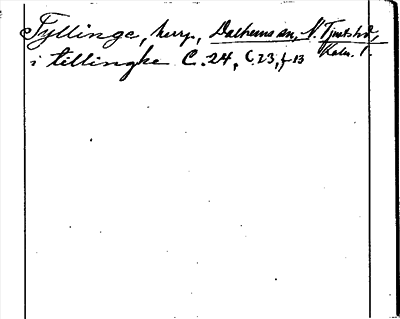 Tyllinge, herrg., Dalhems sn, N. Tjusts hd,
Kalm. l.
i tillinghe C. 24, C 23, f 13